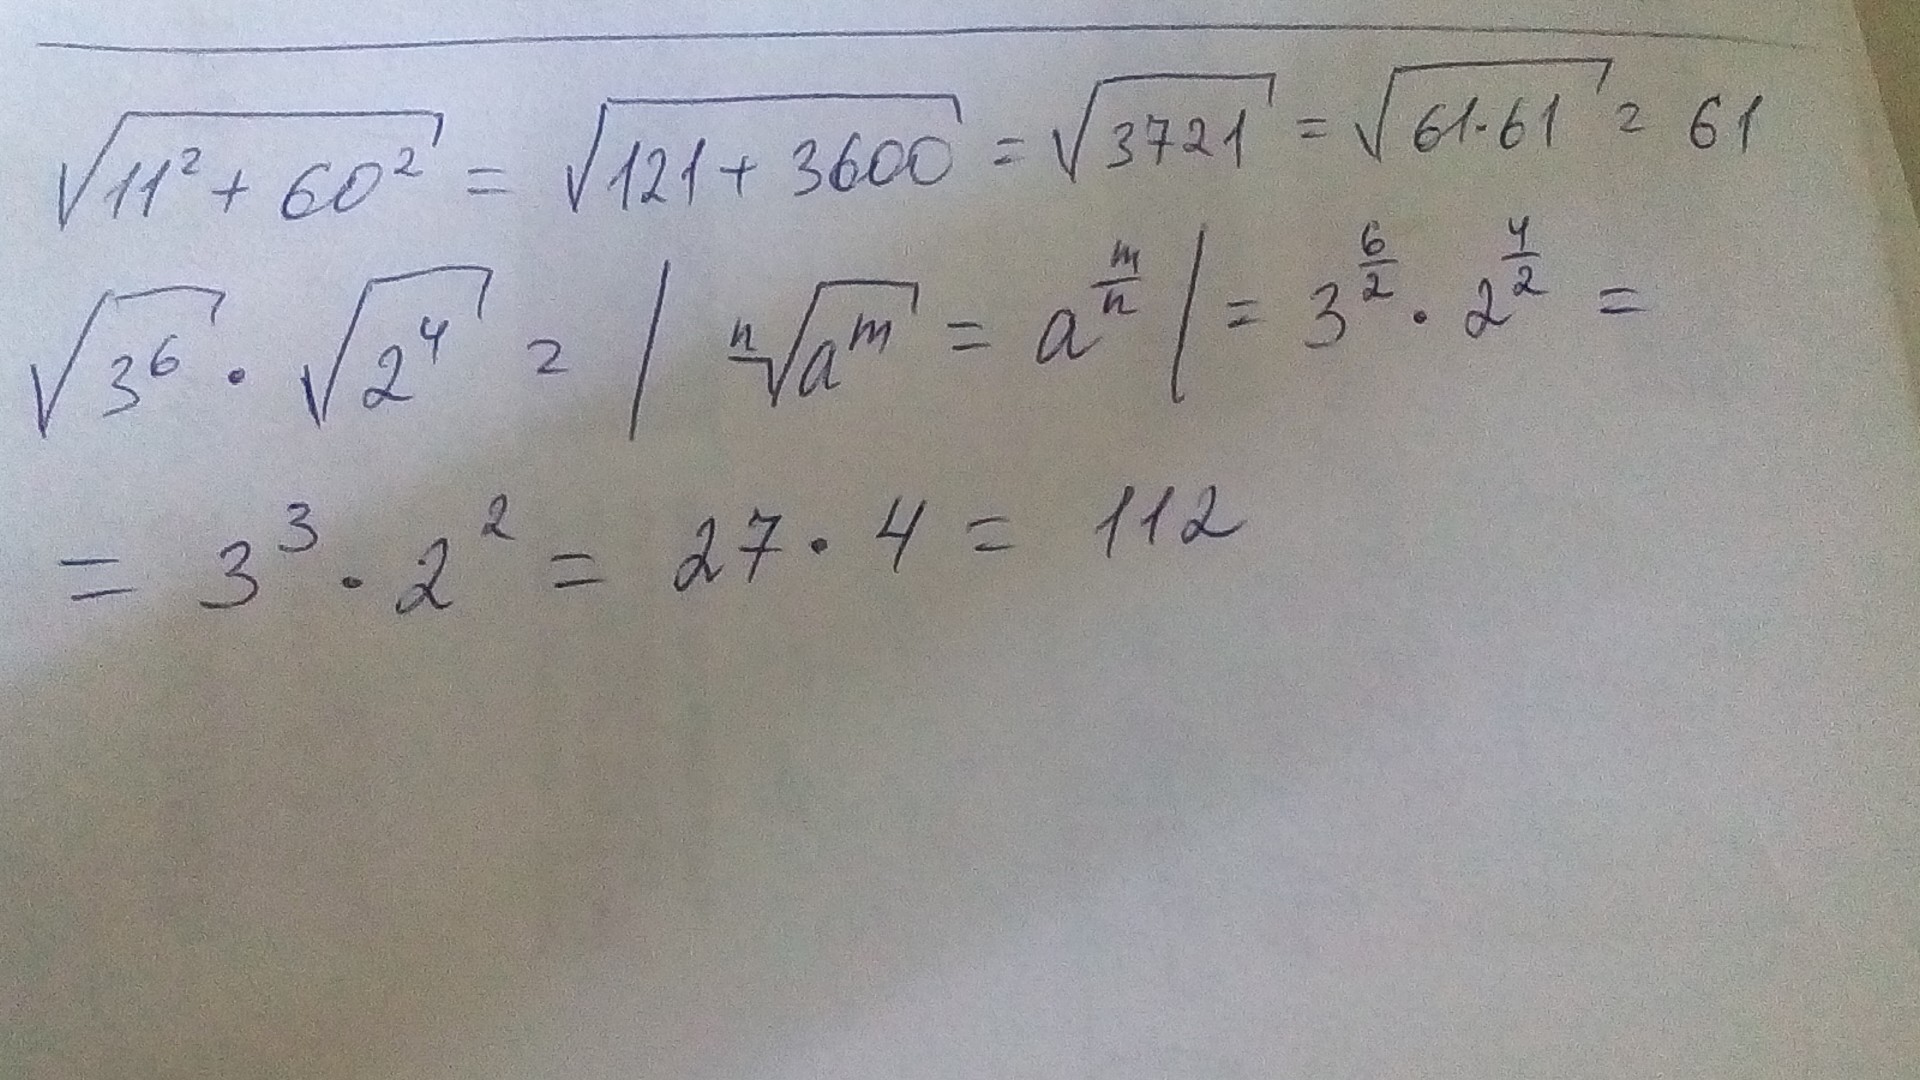 √(11² + 60²) = √(121 + 3600) = √3721 = √(61·61) = 61
√3⁶ · √2⁴ = | ⁿ√aᵐ = a^(m/n) | = 3^(6/2) · 2^(4/2) =
= 3³ · 2² = 27 · 4 = 112